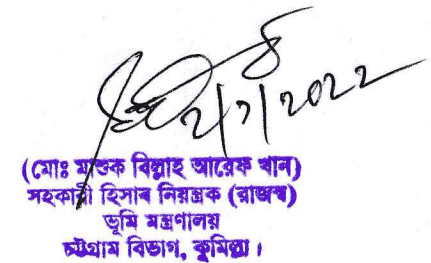 2/7/2022
(মোঃ মাশুক বিল্লাহ আরেফ খান)
সহকারী হিসাব নিয়ন্ত্রক (রাজস্ব)
ভূমি মন্ত্রণালয়
চট্টগ্রাম বিভাগ, কুমিল্লা।